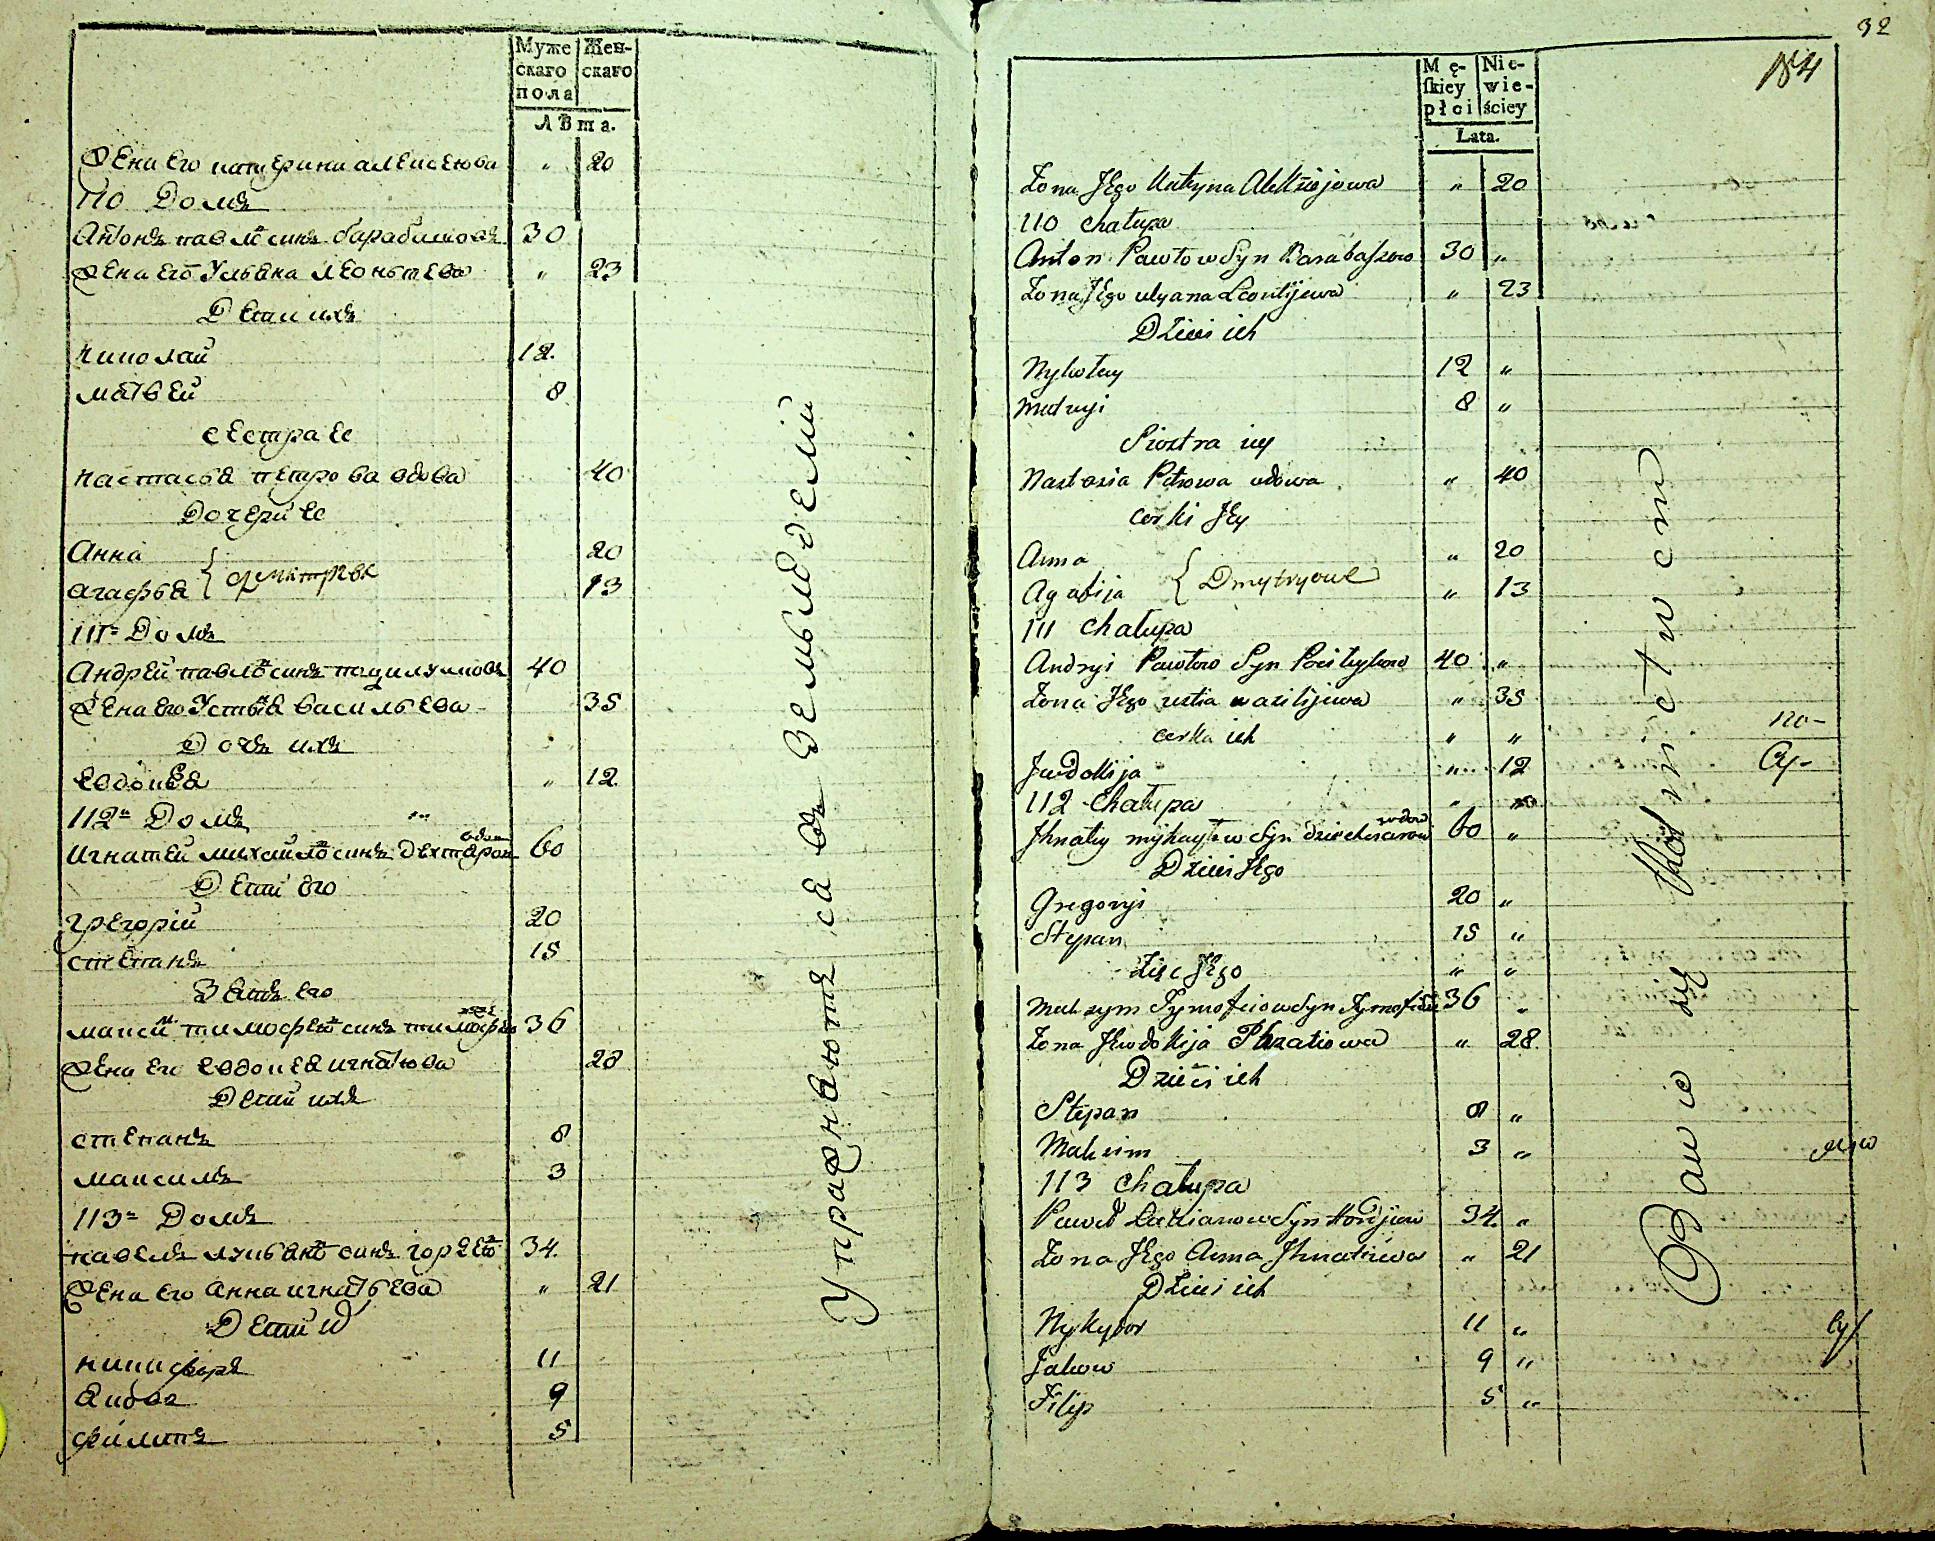 Муже
скаго
пола
Жен-
скаго
Лѣта.
Жена Его катерина алеисеюва " 20
110 Домъ
Антонъ павлѡ синъ барабашовъ 30
Жена его Ульяна леонътева " 23
Дети ихъ
николай 12.
матвей 8
сестра ее
настасья петрова вдова 40
Дочери ее
Анна 20
агафья 13
111 Домъ
Андрей павлѡ синъ 40
Жена его Устья васильева 35
Дочь ихъ
евдокея " 12
112 Домъ
игнатей михайлѡ синъ 60
Дети его
грегорій 20
степанъ 15
Зять его
максим тимофеѡ синъ 36
Жена его евдокея игнатова 28
Дети ихъ
степанъ 8
максимъ 3
113 Домъ
павелъ лукьянѡ синъ 34.
Жена его анна игнатьева " 21
Дети и
никифоръ 11
Яковъ 9
филипъ 5
Упражнаются въ Земледелии
32
Mę-
ſkiey
płci
Nie-
wie-
ściey
Lata.
Żona Jego Katryna Alekziejowa " 20
110 chałupa
Anton Pawłow Syn Barabaszow 30 "
Żona Jego ulyana Leontijewa " 23
Dzieci ich
Nykołay 12 "
8 "
Siostra iey
Nastazia Petrowa udowa " 40
corki Jey
Anna " 20
Agafija " 13
Dmytryowe
111 chałupa
Andryi Pawłow Syn 40 "
Żona Jego ustia wasilijewa " 35
corka ich " "
Jewdokija " 12
112 Chałupa
Jhnaty myhayłow Syn 60 "
Dzieci Jego
Gregoryi 20 "
Stepan 15 "
Zięc Jego " "
Maksym Tymofeiow Syn 36 "
Żona Jewdokija " 28
Dzieci ich
Stepan 8 "
Maksim 3 "
113 chałupa
Paweł Łukianow Syn 34 "
Żona Jego Anna Jhnatiewa " 21
Dzieci ich
Nykyfor 11 "
Jakow 9 "
Filip 5 "
Bawie się Rolnictwem